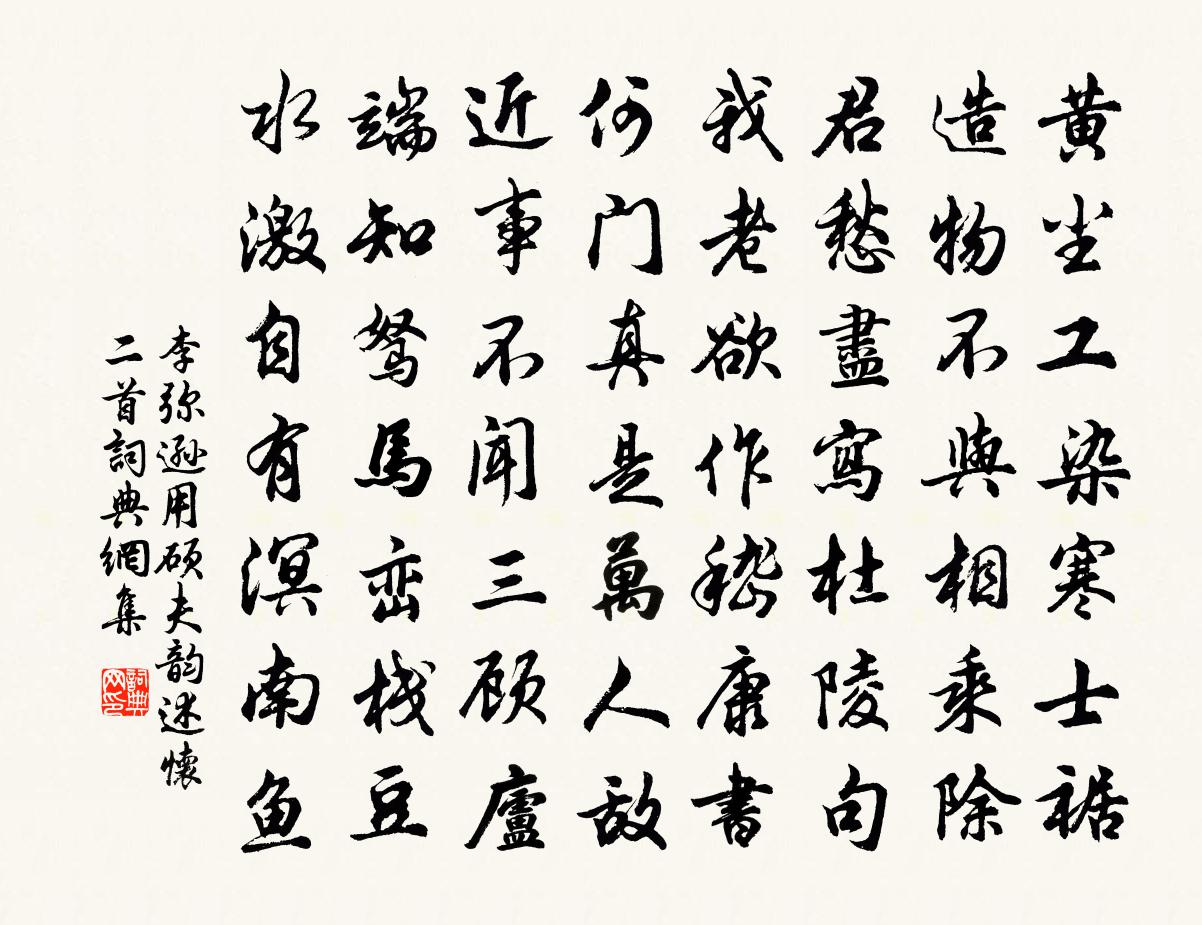 黄尘工染寒士裾
造物不與相乘除
君愁盡寫杜陵句
我老欲作嵇康書
何门真是萬人敌
近事不闻三顾廬
端知驽馬峦栈豆
水激自有溟南鱼
李弥逊用硕夫韵述懷
二首詞典網集
詞典网印